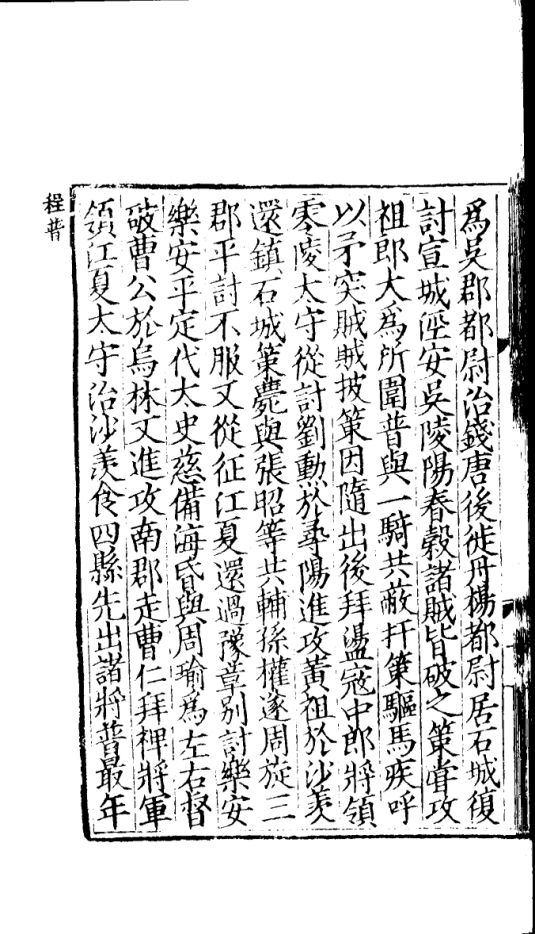 爲吳郡都尉治錢唐後徙丹楊都尉居石城復
討宣城涇安吳陵陽春穀諸賊皆破之策嘗攻
祖郎大爲所圍普與一騎共蔽扞策驅馬疾呼
以矛突賊賊披策因隨出後拜盪寇中郎將領
零陵太守從討劉勳於尋陽進攻黃祖於沙羨
還鎮石城策薨與張昭等共輔孫權遂周旋三
郡平討不服又從征江夏還過豫章別討樂安
樂安平定代太史慈備海昏與周瑜爲左右督
破曹公於烏林又進攻南郡走曹仁拜裨將軍
領江夏太守治沙羨食四縣先出諸將普最年
程普